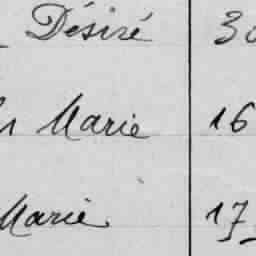 Désiré 30
Marie 16
Marie 17